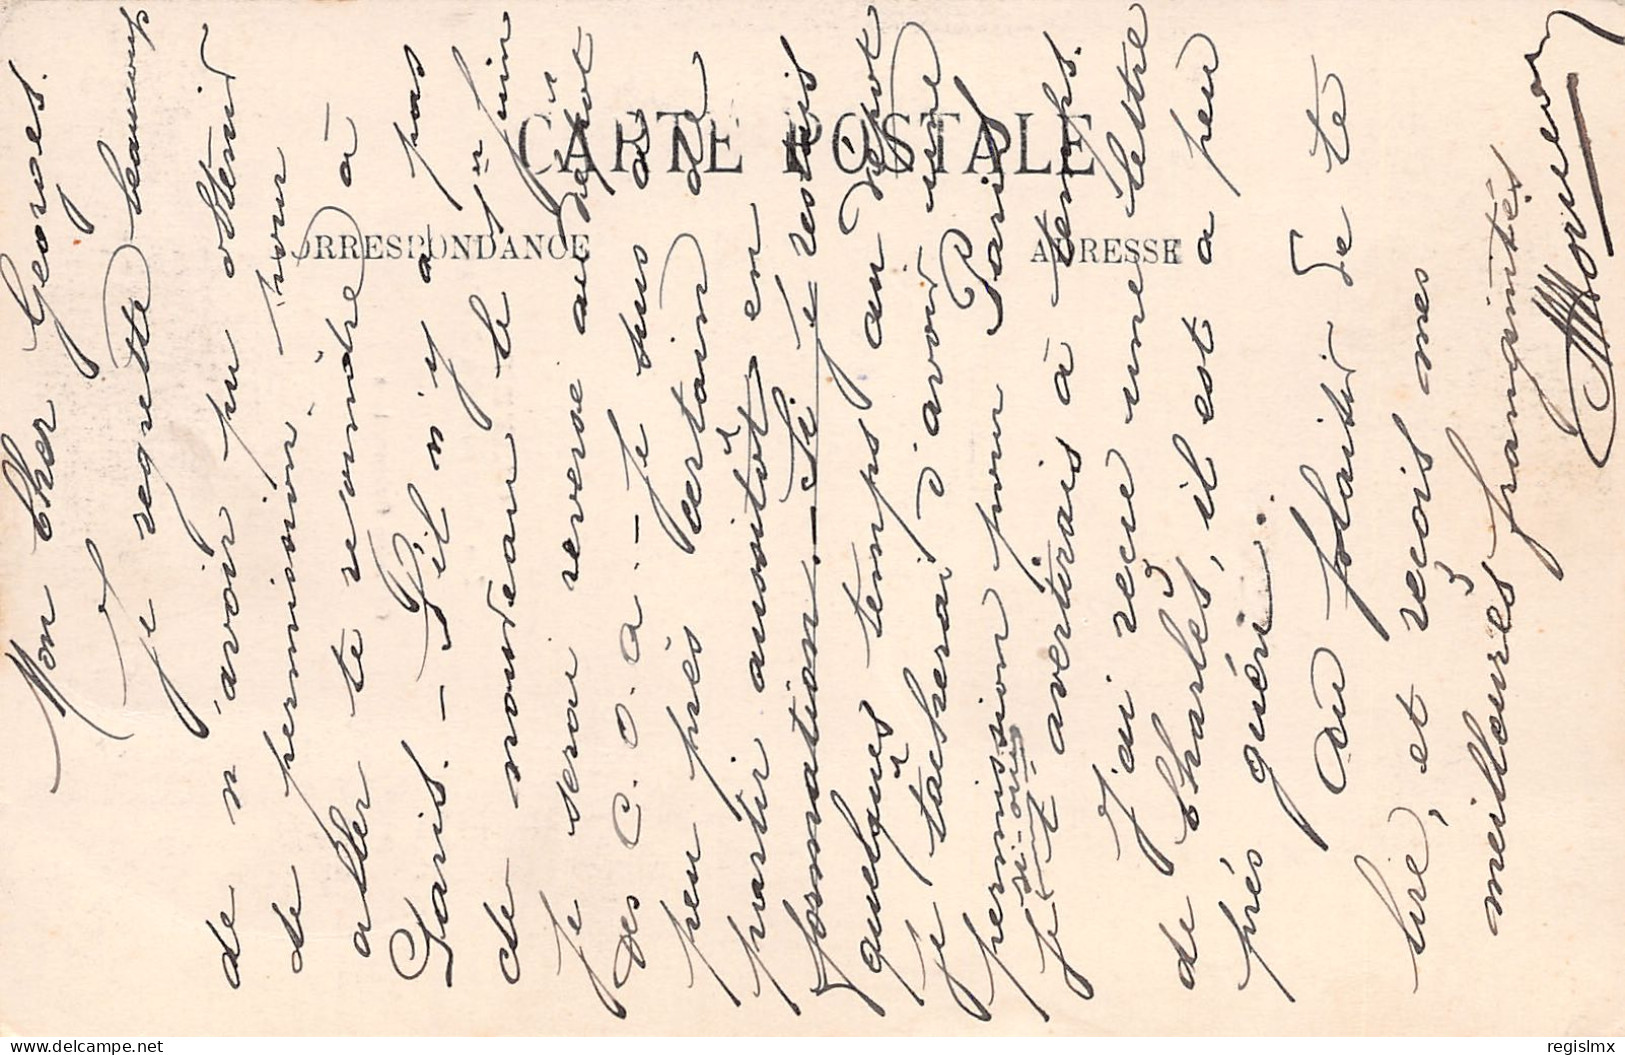 CARTE POSTALE
CORRESPONDANCE
ADRESSE
Mon Cher Georges.
Je regrette beaucoup
de n'avoir pu obtenir
de permission pour
aller te rejoindre à
Paris. - S'il n'y a pas
de nouveau le 1er juin
je serai versé au dépôt
des C.O.A. - Je suis à
peu près certain de
partir aussitôt en
formation. - Si je restais
quelques temps au dépôt
je tacherai d'avoir une
permission pour Paris
si-oui
Je t'avertirais à temps.
J'ai reçu une lettre
de Charles, il est à peu
prés guéri.
Au plaisir de te
lire, et reçois mes
meilleures
regislmx
delcampe.net